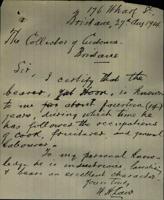 176 Wharf St
Brisbane 27th Aug 1914
The Collector of Customs
Brisbane
Sir, I certify that the
bearer, Yet Hoon, is known to
me for about fourteen (14)
years, during which time he
has followed the occupations
of cook, fruiterer and general
labourer.
To my personal know-
ledge he is industrious
an excellent character.
Yours truly